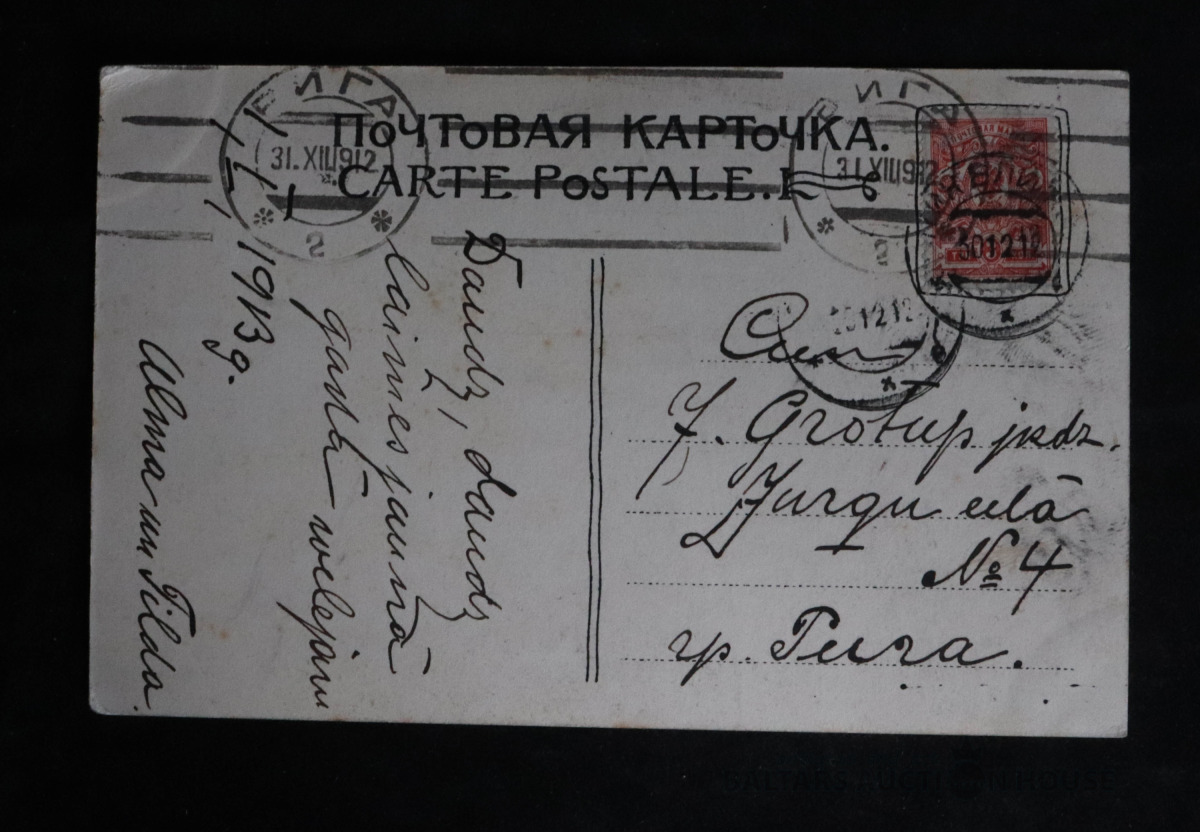 ПОЧТОВАЯ КАРТОЧКА.
CARTE POSTALE.
РИГА
31.XII1912
2
РИГА
31.XII1912
2
30 12 12
Daudz, daudz
laimes jaunā
gadā welejam
1/I, 1913 g.
Alma un Tilda.
J. Grotup jkdz.
Jurgu ielā
№ 4
гр. Рига.
BALTARS AUCTION HOUSE